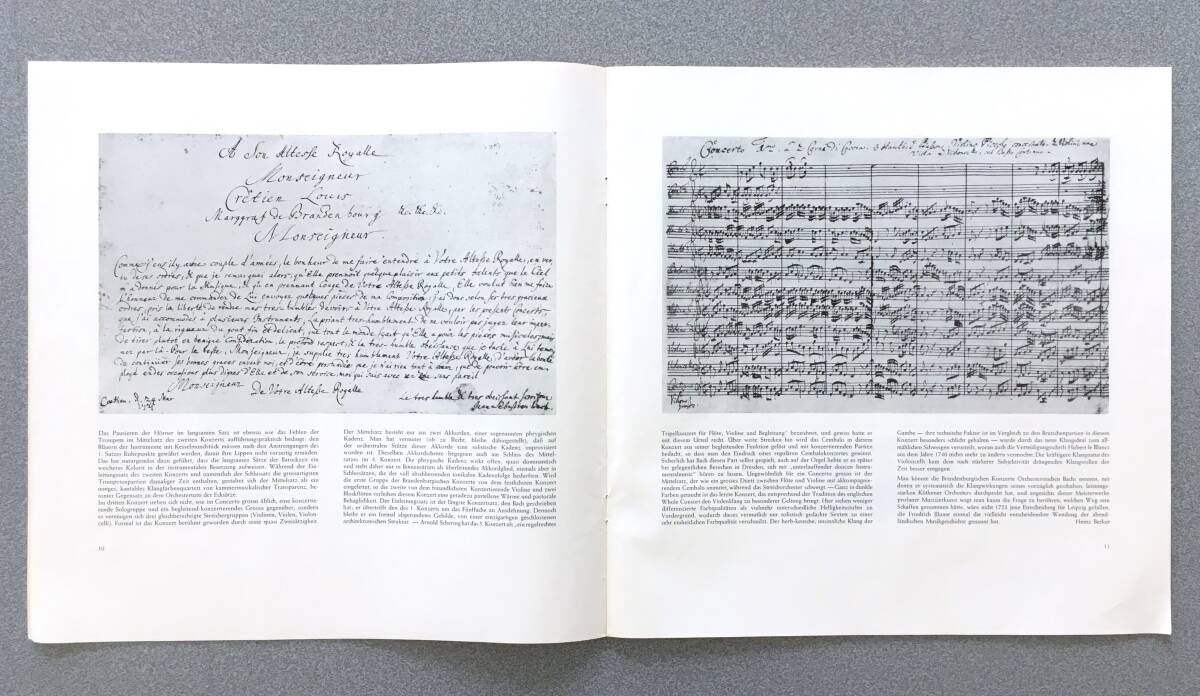 A Son Altesse Royalle
Monseigneur
Crêtien Louis
Marggraf de Brandenbourg &c. &c. &c.
Monseigneur
Comme j'eus il y a une couple d'années, le bonheur de me faire entendre à Votre Altesse Royalle, en ver¬
tu de ses ordres, & que je remarquai alors, qu'Elle prennoit quelque plaisir aux petits talents que le Ciel
m'a donnés pour la Musique, & qu'en prennant Conge de Votre Altesse Royalle, Elle voulut bien me faire
l'honneur de me commander de Lui envoyer quelques pieces de ma Composition: j'ai donc selon ses tres gracieux
ordres, pris la liberté de rendre mes tres-humbles devoirs à Votre Altesse Royalle, par les presents Concerts
que j'ai accommodés à plusieurs Instruments; La priant tres-humblement de ne vouloir pas juger leur imper¬
fection, à la rigueur du gout fin et delicat, que tout le monde sçait qu'Elle a pour les pièces musicales
de tirer plutot en benigne Consideration, le profond respect, & la tres-humble obeissance que je tache à Lui temoi¬
gner par là. Pour le reste, Monseigneur, je supplie tres humblement Votre Altesse Royalle, d'avoir la bonté
de continuer ses bonnes graces envers moi, et d'être persuadée que je n'ai rien tant à cœur, que de pouvoir être em¬
ployé en des occasions plus dignes d'Elle et de son service, moi qui suis avec un zele sans pareil
Monseigneur
De Votre Altesse Royalle
Coethen. d. 24 Mar
1721
Le tres humble & tres obeissant serviteur
Jean Sebastien Bach.
Das Pausieren der Hörner im langsamen Satz ist ebenso wie das Fehlen der
Trompete im Mittelsatz des zweiten Konzerts aufführungspraktisch bedingt: den
Bläsern der Instrumente mit Kesselmundstück müssen nach den Anstrengungen des
1. Satzes Ruhepunkte gewährt werden, damit ihre Lippen nicht vorzeitig ermüden.
Das hat naturgemäß dazu geführt, dass die langsamen Sätze der Barockzeit ein
weicheres Kolorit in der instrumentalen Besetzung aufweisen. Während der Ein-
leitungssatz des zweiten Konzerts und namentlich der Schlusssatz die grossartigsten
Trompetenpartien damaliger Zeit enthalten, gestaltet sich der Mittelsatz als ein
inniges, kostbares Klangfarbenquartett von kammermusikalischer Transparenz, be-
tonter Gegensatz zu dem Orchestertutti der Ecksätze.
Im dritten Konzert stehen sich nicht, wie im Concerto grosso üblich, eine konzertie-
rende Sologruppe und ein begleitend-konzertierendes Grosso gegenüber, sondern
es vereinigen sich drei gleichberechtigte Streichergruppen (Violinen, Violen, Violon-
celli). Formal ist das Konzert berühmt geworden durch seine quasi Zweisätzigkeit
Der Mittelsatz besteht nur aus zwei Akkorden, einer sogenannten phrygischen
Kadenz. Man hat vermutet (ob zu Recht, bleibe dahingestellt), daß auf
der orchestralen Stütze dieser Akkorde eine solistische Kadenz improvisiert
worden ist. Dieselben Akkordschritte begegnen auch am Schluss des Mittel-
satzes im 4. Konzert. Die phrygische Kadenz wirkt offen, quasi dominantisch
und steht daher nur in Binnensätzen als überleitendes Akkordglied, niemals aber in
Schlusssätzen, die der voll abschliessenden tonikalen Kadenzfolge bedürfen. Wird
die erste Gruppe der Brandenburgischen Konzerte von dem festlichsten Konzert
eingeleitet, so die zweite von dem freundlichsten. Konzertierende Violine und zwei
Blockflöten verleihen diesem Konzert eine geradezu partielbare Wärme und pastorale
Behaglichkeit. Der Einleitungssatz ist der längste Konzertsatz, den Bach geschrieben
hat; er übertrifft den des 1. Konzerts um das Fünffache an Ausdehnung. Dennoch
bleibt er ein formal abgerundetes Gebilde, von einer einzigartigen geschlossenen
architektonischen Struktur. — Arnold Schering hat das 5. Konzert als „ein regelrechtes
10
Concerto 1mo à 2 Corni di Caccia, 3 Hautb: è Bassono, Violino Piccolo concertato, 2 Violini, una
Viola è Violoncello, col Basso Continuo.
Tripelkonzert für Flöte, Violine und Begleitung“ bezeichnet, und gewiss hatte er
mit diesem Urteil recht. Über weite Strecken hin wird das Cembalo in diesem
Konzert aus seiner begleitenden Funktion gelöst und mit konzertierenden Partien
bedacht, so dass man den Eindruck eines regulären Cembalokonzertes gewinnt.
Sicherlich hat Bach diesen Part selbst gespielt, auch auf der Orgel liebte er es später
bei gelegentlichen Besuchen in Dresden, sich mit „unterlauffender doucen Instru-
mentalmusic“ hören zu lassen. Ungewöhnlich für ein Concerto grosso ist der
Mittelsatz, der wie ein grosses Duett zwischen Flöte und Violine mit akkompagnie-
rendem Cembalo anmutet, während das Streichorchester schweigt. — Ganz in dunkle
Farben getaucht ist das letzte Konzert, das entsprechend der Tradition des englischen
Whole Consort den Violenklang zu besonderer Geltung bringt. Hier stehen weniger
differenzierte Farbqualitäten als vielmehr unterschiedliche Helligkeitsstufen im
Vordergrund, wodurch dieses vermutlich nur solistisch gedachte Sextett zu einer
sehr einheitlichen Farbqualität verschmilzt. Der herb-keusche, unsinnliche Klang der
Gambe — ihre technische Faktur ist im Vergleich zu den Bratschenpartien in diesem
Konzert besonders schlicht gehalten — wurde durch das neue Klangideal zum all-
mählichen Schweigen verurteilt, woran auch die Verteidigungsschrift Hubert le Blancs
aus dem Jahre 1740 nichts mehr zu ändern vermochte. Die kräftigere Klangnatur des
Violoncells kam dem nach stärkerer Subjektivität drängenden Klangwollen der
Zeit besser entgegen.
Man könnte die Brandenburgischen Konzerte Orchesterstudien Bachs nennen, mit
denen er systematisch die Klangwirkungen seines vorzüglich geschulten, leistungs-
starken Köthener Orchesters durchprobt hat, und angesichts dieser Meisterwerke
profaner Musizierkunst wagt man kaum die Frage zu berühren, welchen Weg sein
Schaffen genommen hätte, wäre nicht 1723 jene Entscheidung für Leipzig gefallen,
die Friedrich Blume einmal die vielleicht entscheidendste Wendung der abend-
ländischen Musikgeschichte genannt hat.
Heinz Becker
11